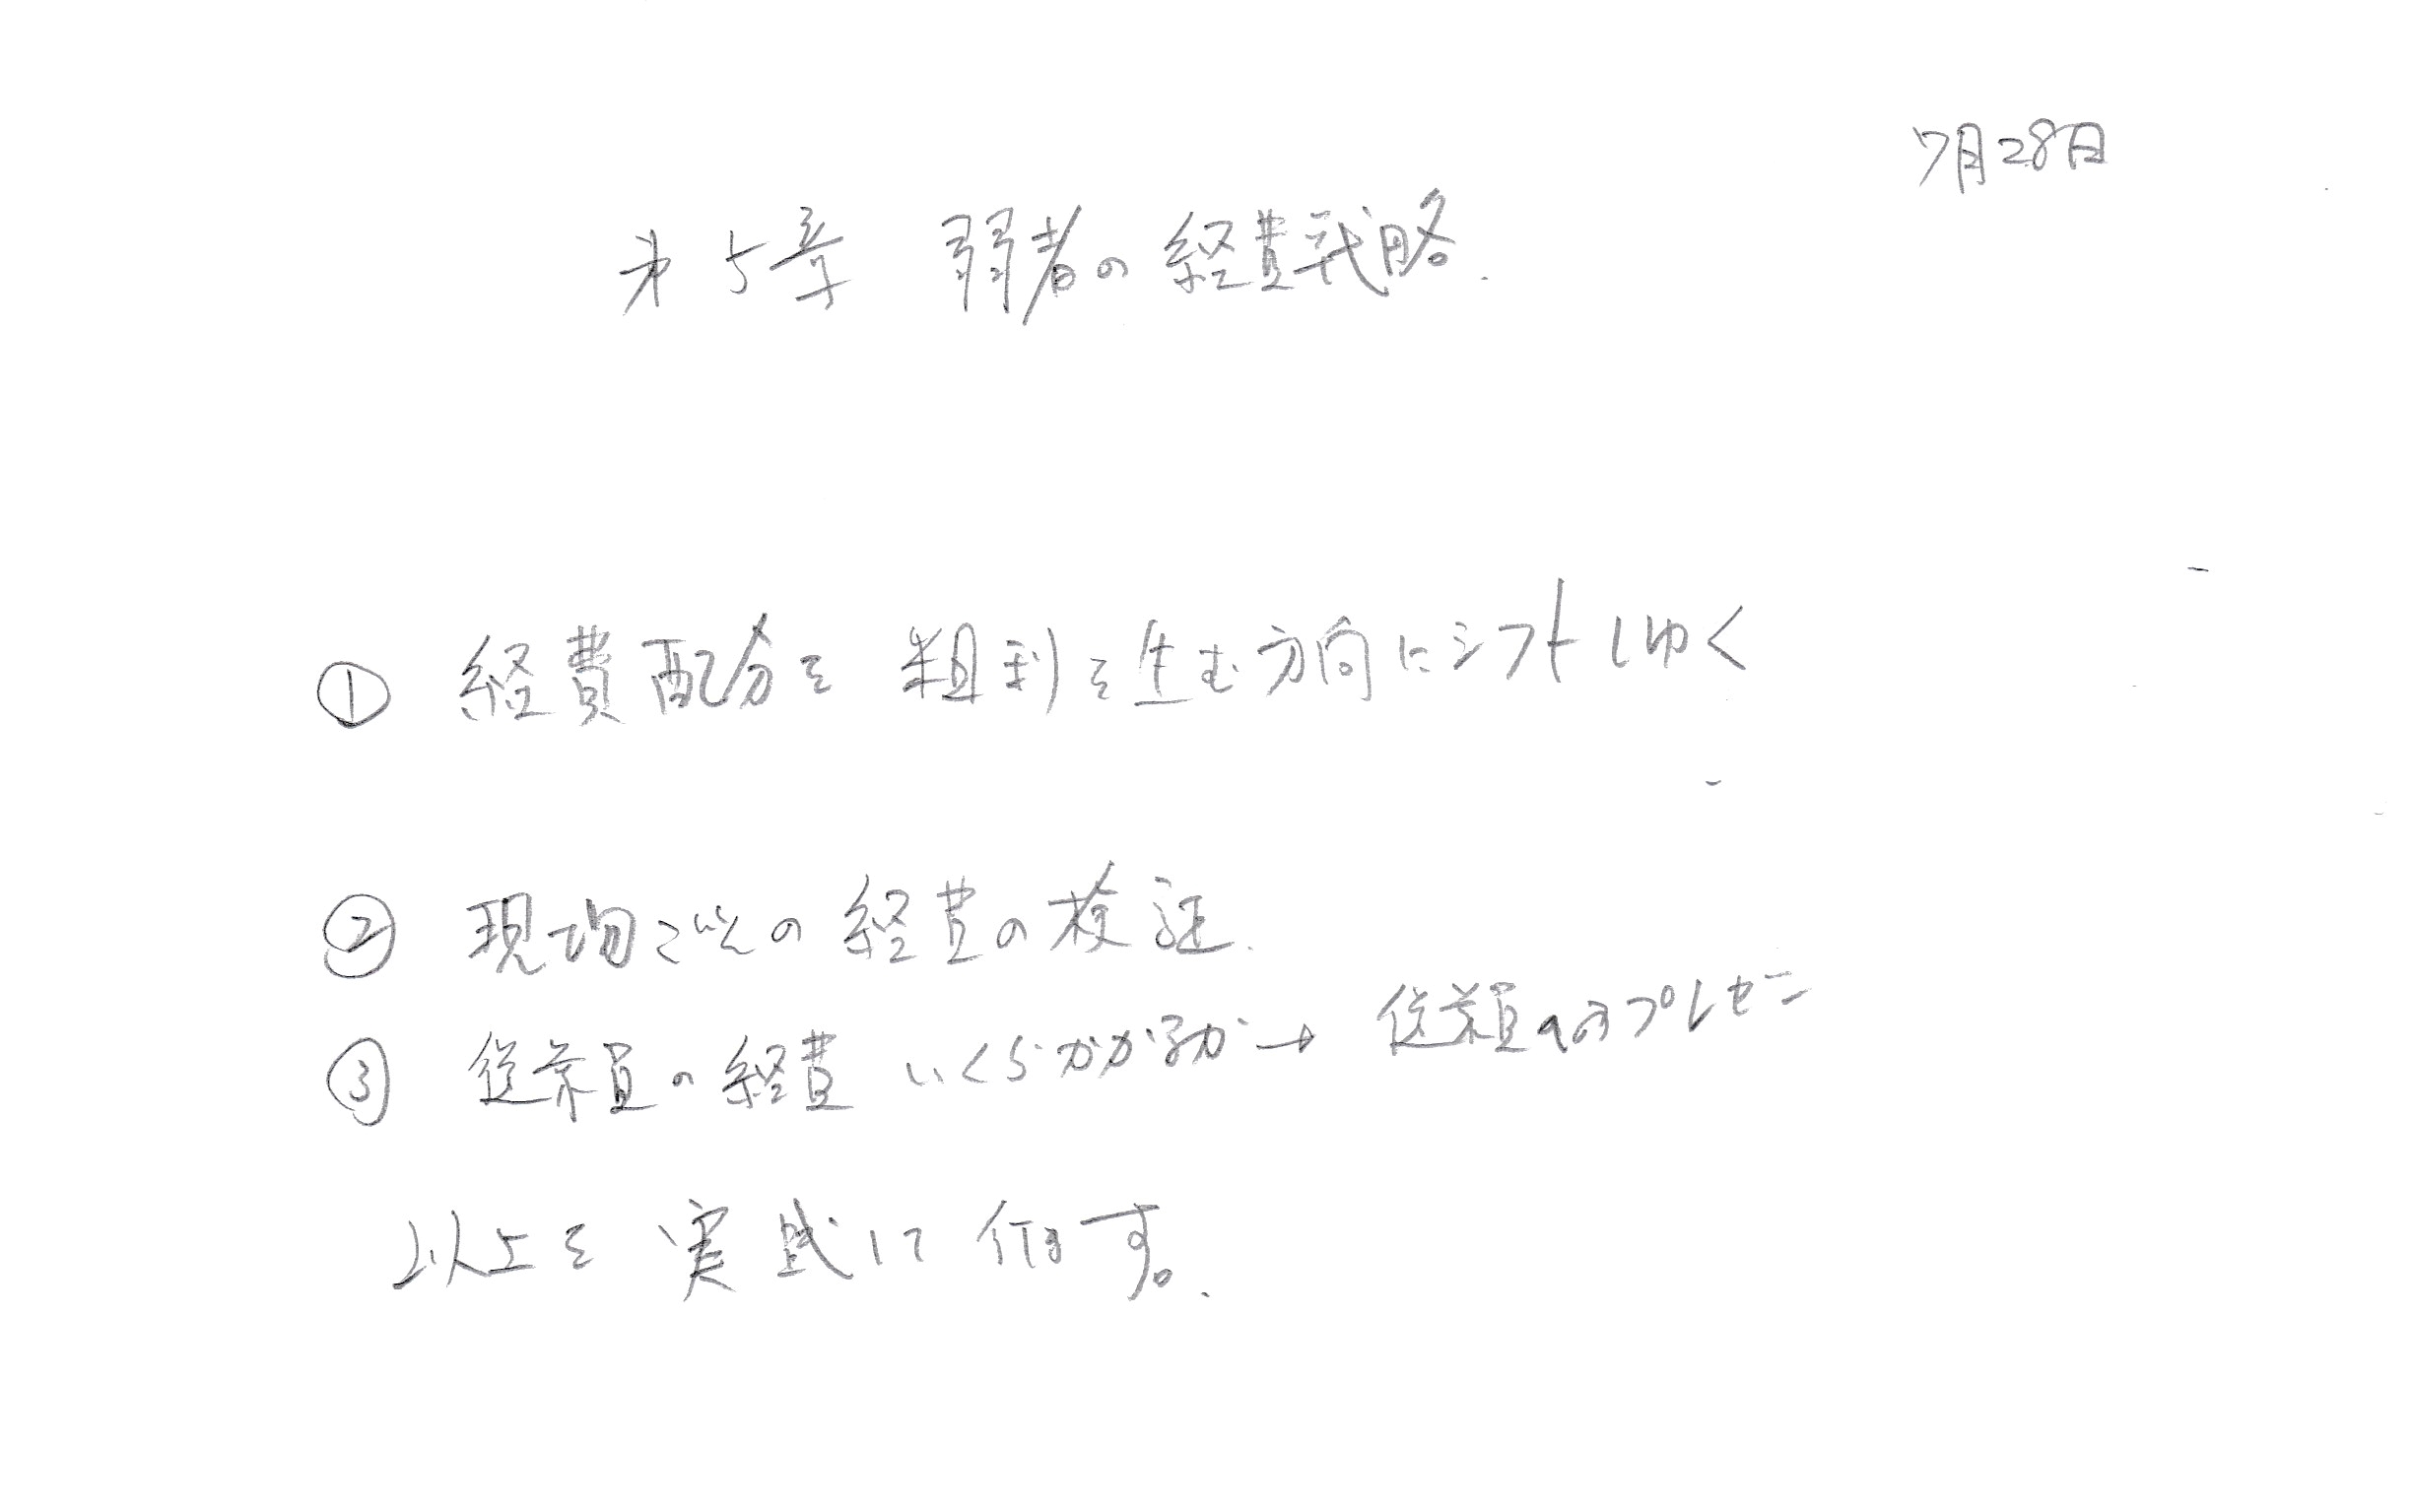 7月28日
第5章 弱者の経費戦略.
① 経費配分を 粗利を生む方向にシフトしゆく
② 現場ごとの経費の検証.
③ 従業員の経費 いくらかかるか→ 従業員へのプレゼン
以上を 実践に 行す。